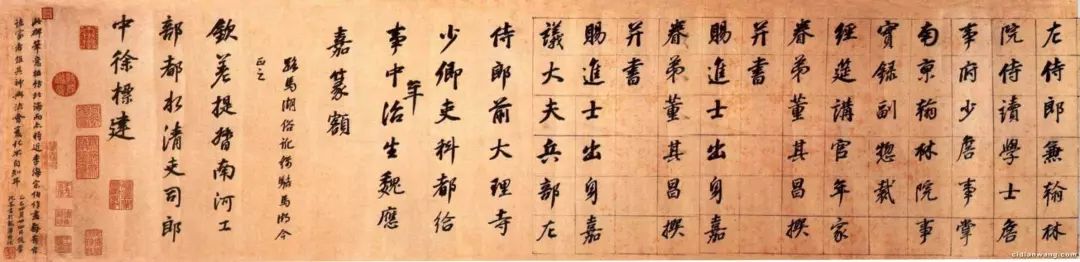 左侍郎兼翰林
院侍讀學士詹
事府少詹事掌
南京翰林院事
實錄副惣裁
經筵講官年家
眷弟董其昌撰
并書
賜進士出身嘉
眷弟董其昌撰
并書
賜進士出身嘉
議大夫兵部左
侍郎前大理寺
少卿吏科都給
年
事中治生魏應
嘉篆額
駱馬湖俗訛傳駱馬湖今
正之
欽差提督南河工
部都水清吏司郎
中徐標建
cidianwang.com